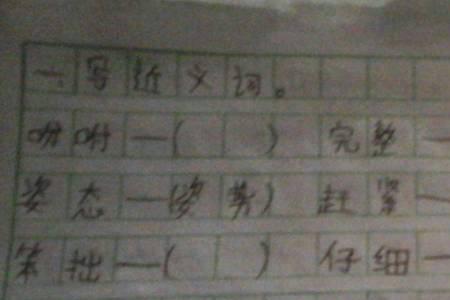 一、写近义词。
吩咐—(  )  完整—
姿态—(姿势)  赶紧—
笨拙—(  )  仔细—